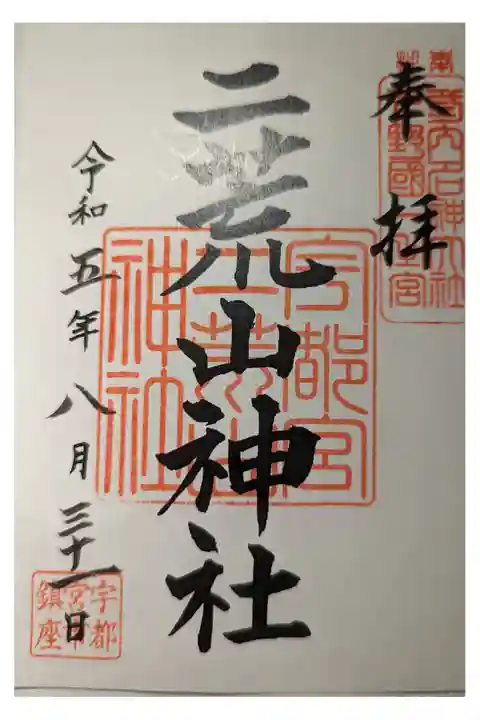 奉拝
二荒山神社
宇都宮
二荒山
神社
令和五年八月三十一日
宇都
宮市
鎮座